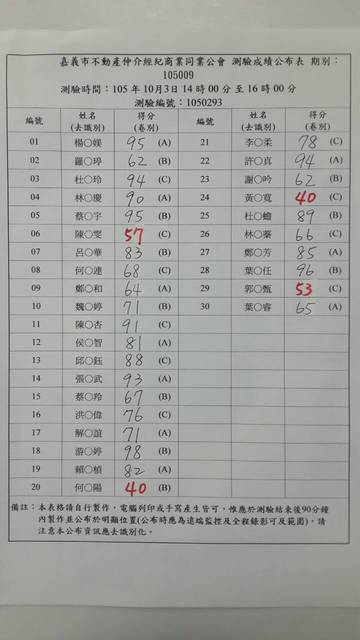 嘉義市不動產仲介經紀商業同業公會 測驗成績公布表 期別：
105009
測驗時間：105 年 10月3日 14 時 00 分 至 16 時 00 分
測驗編號：1050293
編號 姓名(去識別) 得分(卷別) 編號 姓名(去識別) 得分(卷別)
01 楊○媄 95 (A) 21 李○柔 78 (C)
02 羅○琤 62 (B) 22 許○真 94 (A)
03 杜○玲 94 (C) 23 謝○吟 62 (B)
04 林○慶 90 (A) 24 黃○寬 40 (C)
05 蔡○宇 95 (B) 25 杜○蟾 89 (B)
06 陳○雯 57 (C) 26 林○蓁 66 (C)
07 呂○華 83 (B) 27 鄭○芳 85 (A)
08 何○連 68 (C) 28 葉○任 96 (B)
09 鄭○和 64 (A) 29 郭○甄 53 (C)
10 魏○婷 71 (B) 30 葉○睿 65 (A)
11 陳○杏 91 (C)
12 侯○智 81 (A)
13 邱○鈺 88 (C)
14 張○武 93 (A)
15 蔡○羚 67 (B)
16 洪○偉 76 (C)
17 解○誼 71 (A)
18 游○婷 98 (B)
19 賴○楨 82 (A)
20 何○陽 40 (B)
備註：本表格請自行製作，電腦列印或手寫產生皆可，惟應於測驗結束後90分鐘
內製作並公布於明顯位置(公布時應為遠端監控及全程錄影可及範圍)，請
注意本公布資訊應去識別化。